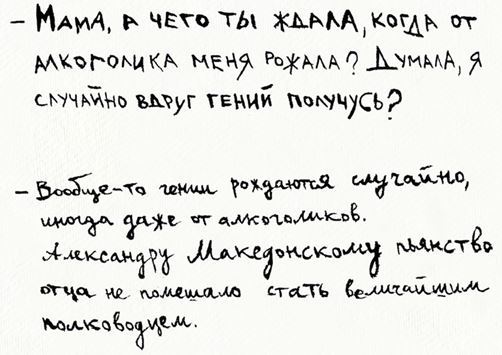 – Мама, а чего ты ждала, когда от
алкоголика меня рожала? Думала, я
случайно вдруг гений получусь?
– Вообще-то гении рождаются случайно,
иногда даже от алкоголиков.
Александру Македонскому пьянство
отца не помешало стать величайшим
полководцем.